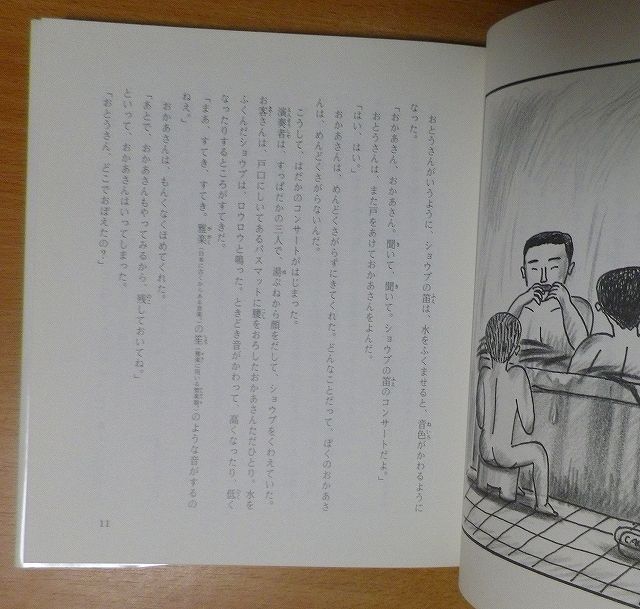 おとうさんがいうように、ショウブの笛は、水をふくませると、音色がかわるように
なった。
「おかあさん、おかあさん。聞いて、聞いて。ショウブの笛のコンサートだよ。」
おとうさんは、また戸をあけておかあさんをよんだ。
「はい、はい。」
おかあさんは、めんどくさがらずにきてくれた。どんなことだって、ぼくのおかあさ
んは、めんどくさがらないんだ。
こうして、はだかのコンサートがはじまった。
演奏者は、すっぱだかの三人で、湯ぶねから顔をだして、ショウブをくわえていた。
お客さんは、戸口にしいてあるバスマットに腰をおろしたおかあさんただひとり。水を
ふくんだショウブは、ロウロウと鳴った。ときどき音がかわって、高くなったり、低く
なったりするところがすてきだ。
「まあ、すてき、すてき。雅楽（日本に古くからある音楽）の笙（雅楽に用いる管楽器）のような音がするの
ねえ。」
おかあさんは、もんくなくほめてくれた。
「あとで、おかあさんもやってみるから、残しておいてね。」
といって、おかあさんはいってしまった。
「おとうさん、どこでおぼえたの？」
11